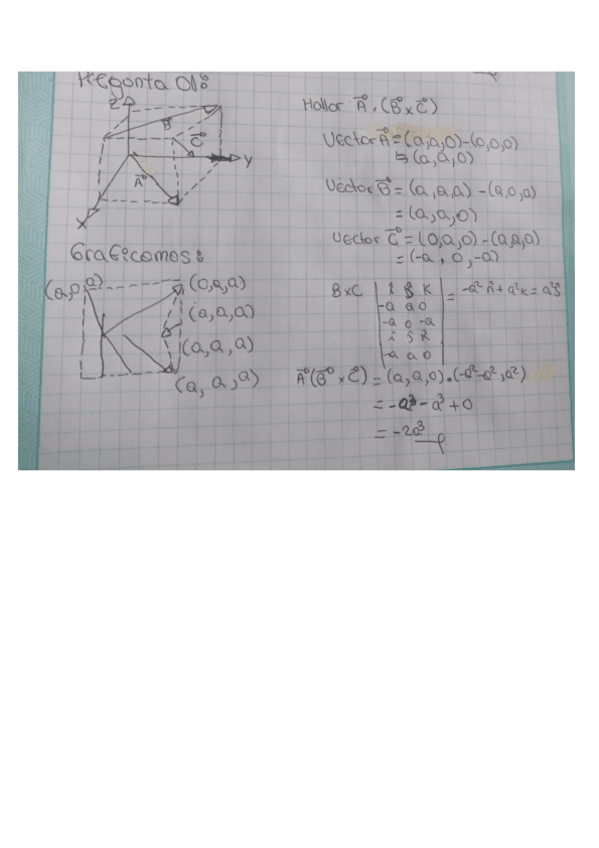 Pregonta 01:
Z
B
C
Y
A
X
Graficomos:
(a,0,a)
(0,a,a)
(a,a,a)
(a,a,a)
(a,a,a)
Hallor A . (B x C)
Vector A = (a,a,0)-(0,0,0)
= (a,a,0)
Vector B = (a,a,a) - (a,0,a)
= (a,a,0)
Vector C = (0,a,0)-(a,a,a)
= (-a, 0, -a)
BxC | i j k | = -a² i + a² k = a² j
-a a 0
-a 0 -a
i j k
-a a 0
A (B x C) = (a,a,0) . (-a²-a², a²)
= -a³ - a³ + 0
= -2a³